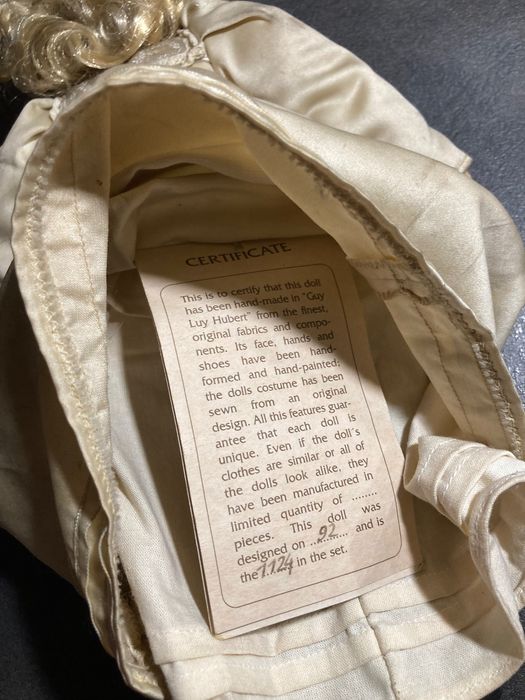 CERTIFICATE
This is to certify that this doll
has been hand-made in "Guy
Luy Hubert" from the finest,
original fabrics and compo-
nents. Its face, hands and
shoes have been hand-
formed and hand-painted;
the dolls costume has been
sewn from an original
design. All this features guar-
antee that each doll is
unique. Even if the doll´s
clothes are similar or all of
the dolls look alike, they
have been manufactured in
limited quantity of ........
pieces. This doll was
designed on ...92... and is
the 1124 in the set.